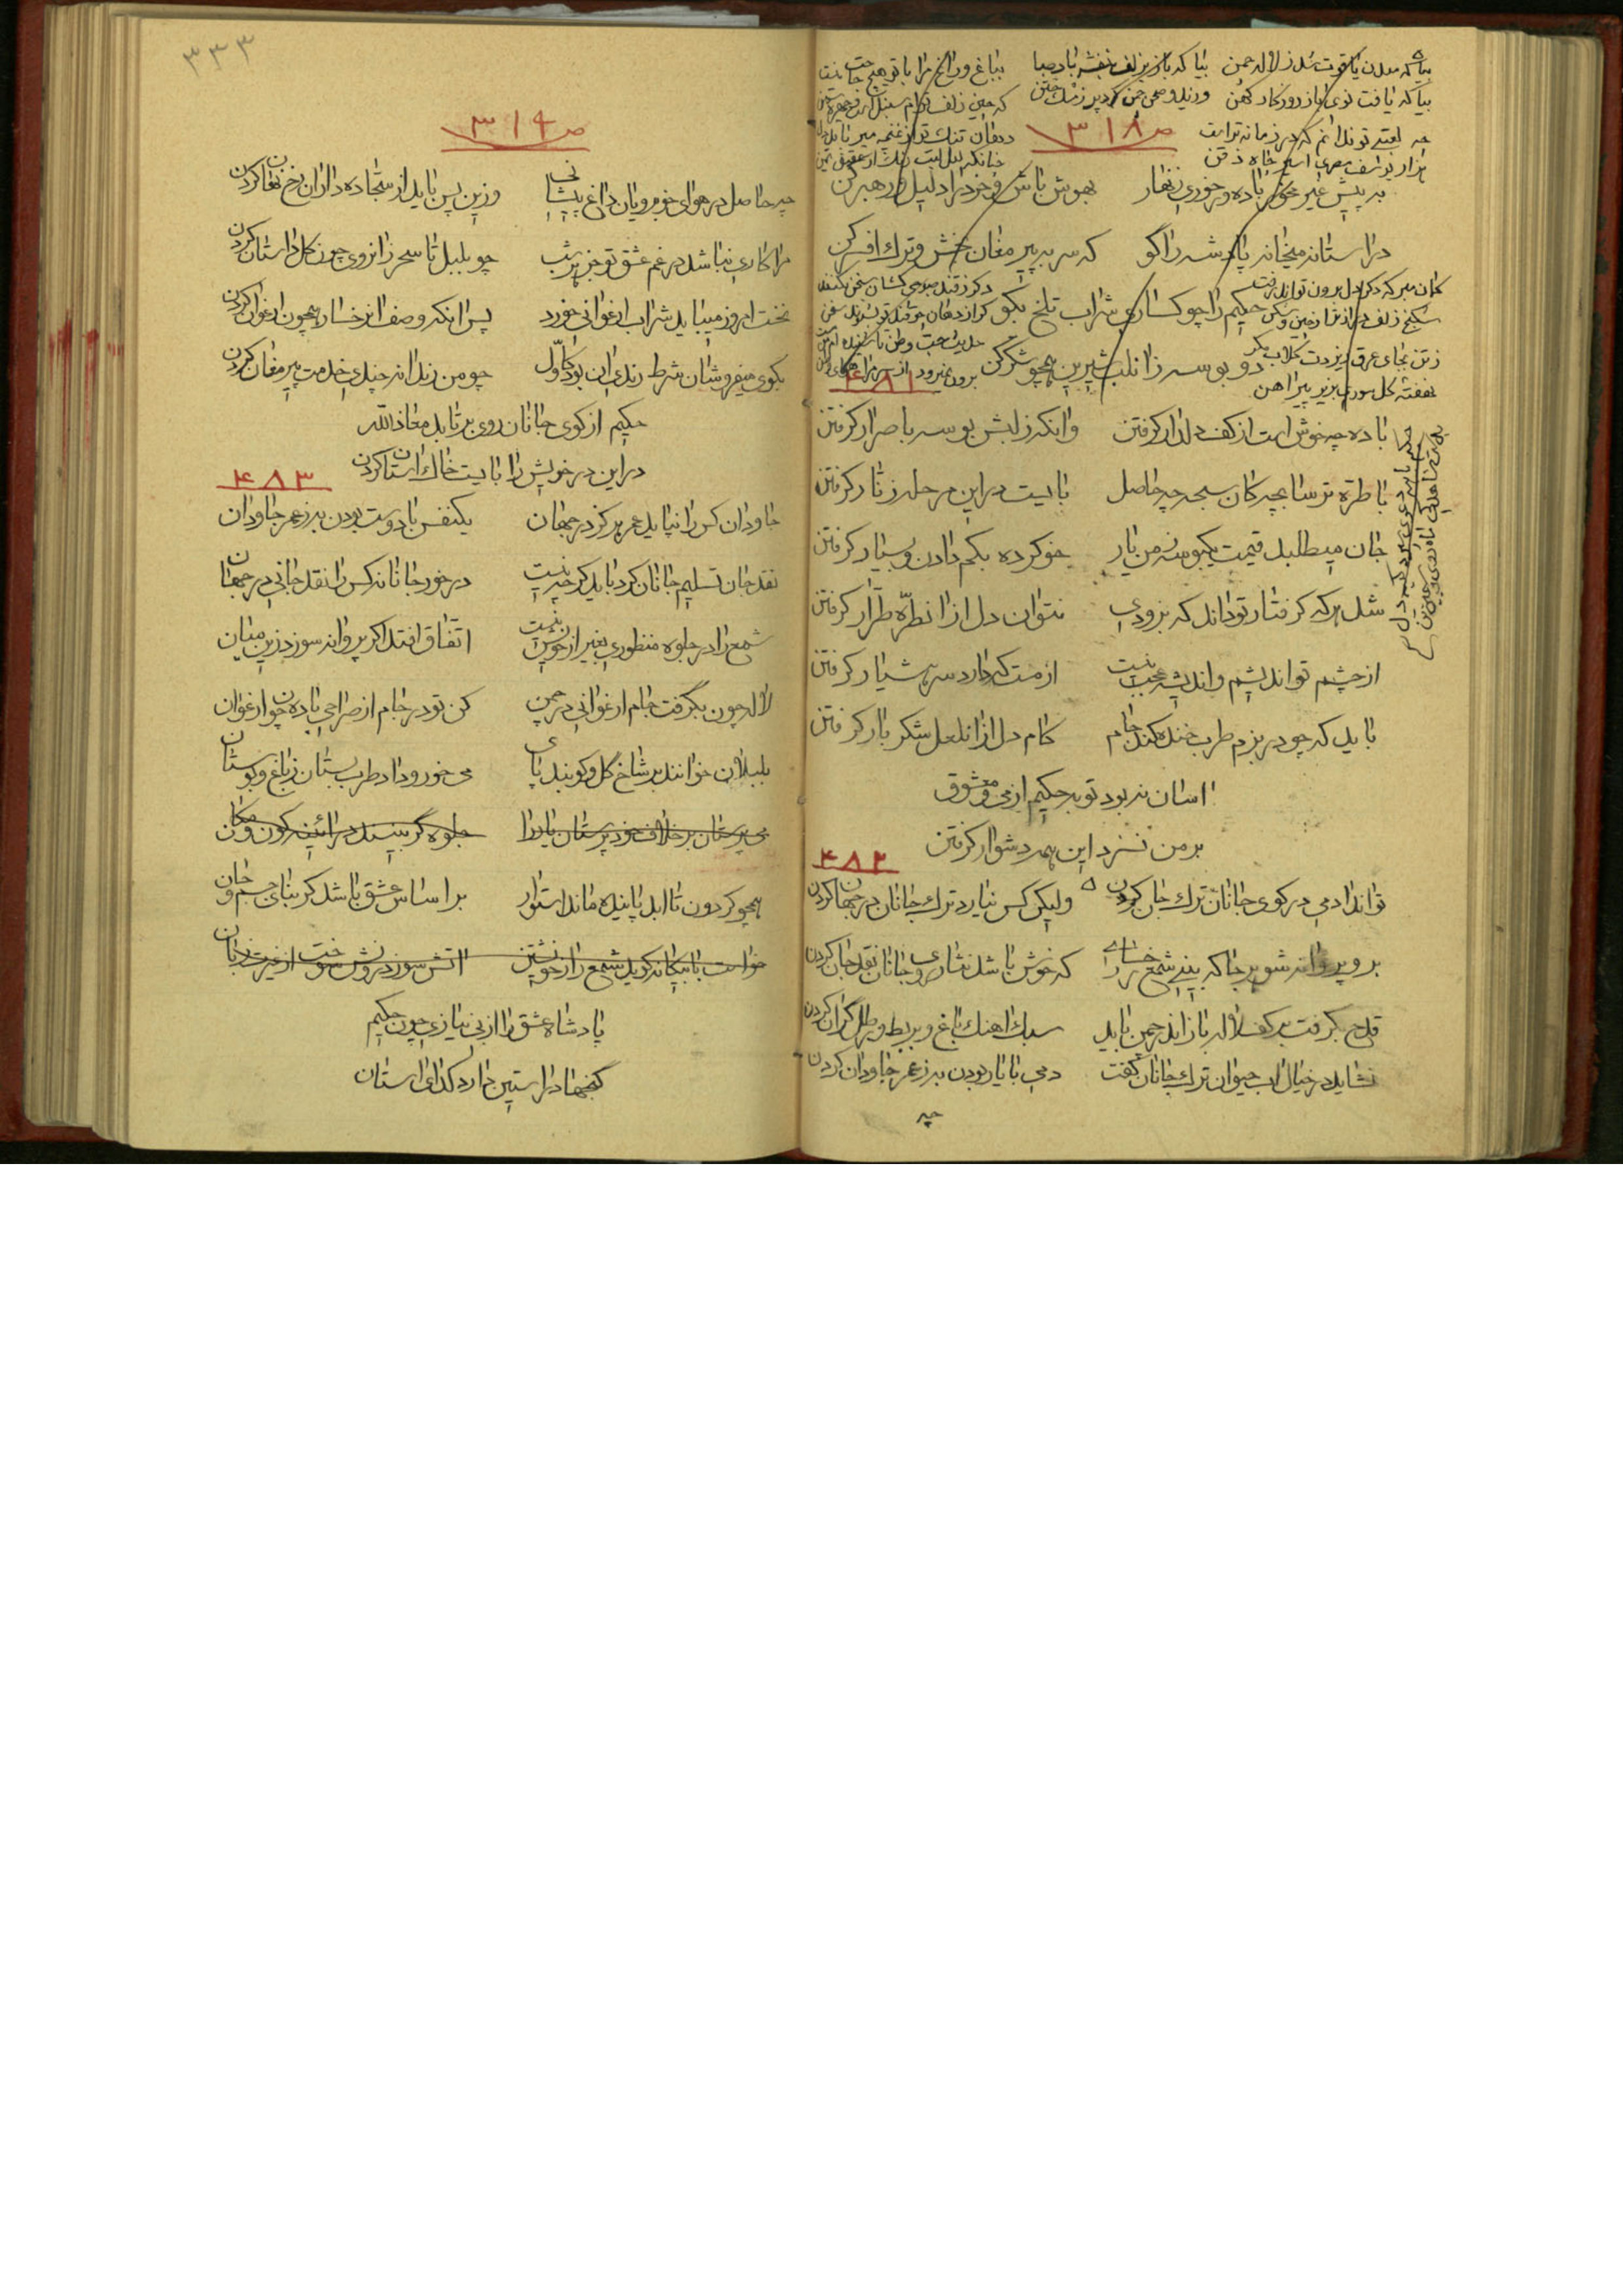 بیا که معدن یاقوت شد ز لاله چمن بیا که باز ز زلف بنفشه باد صبا بباغ و راغ مرا با تو هیچ حاجت نیست
بیا که یافت نوی باز روزگار کهن
ص ۳۱۸
چه لعبتی تو ندانم که در زمانه ترا
هزار یوسف مصری اسیر چاه ذقن
به پیش غیر مخور باده ور خوری زنهار بهوش باش و خرد را دلیل و رهبر کن
در آستانه میخانه پادشه را گو که سر به پیر مغان بخش و ترک افسر کن
گمان مبر که دگر دل برون تواند رفت
حکیم را چو کساری شراب تلخ بگو
دو بوسه زان لب شیرین همچو شکر کن
نهفته گل سوری بزیر پیراهن
۴۸۱
باده چه خوش است از کف دلدار گرفتن وانگه ز لبش بوسه باصرار گرفتن
با طره ترسا بچه کان سبحه چه حاصل بایست در این مرحله زنار گرفتن
جان میطلبد قیمت یکبوسه ز من یار خو کرده بکم دادن و بسیار گرفتن
شد هر که گرفتار تو داند که بزودی نتوان دل از آن طره طرار گرفتن
از چشم تو اندیشم و اندیشه عجب نیست از مست که دارد سر هشیار گرفتن
باید که چو در بزم طرب خنده کند جام کام دل از آن لعل شکربار گرفتن
آسان نبود توبه حکیم از می و معشوق
بر من نسزد این همه دشوار گرفتن
۴۸۲
تواند آدمی در کوی جانان ترک جان کردن ولیکن کس نیارد ترک جانان در جهان کردن
برو پروانه شو هر جا که بینی شمع رخساری که خوش باشد نثار روی جانان نقد جان کردن
قدح بگرفت بر کف لاله باز اندر چمن باید سبک آهنگ باغ و بربط و رطل گران کردن
نشاید در خیال آب حیوان ترک جانان گفت دمی با یار بودن به ز عمر جاودان کردن
چه
۳۳۳
ص ۳۱۹
چه حاصل در هوای خوبرویان داغ پیشانی وزین پس باید از سجاده داران رخ نهان کردن
مرا کاری نباشد در غم عشق تو جز هر شب چو بلبل تا سحر زانروی چون گل داستان کردن
نخست امروز میباید شراب ارغوانی خورد پس آنگه وصف آنرخسار همچون ارغوان کردن
بکوی میفروشان شرط رندی آن بود کاول چو من رندانه چندی خدمت پیر مغان کردن
حکیم از کوی جانان روی بر تابد معاذالله
در این در خویش را بایست خاک آستان کردن
۴۸۳
جاودان کس را نپاید عمر هرگز در جهان یکنفس با دوست بودن به ز عمر جاودان
نقد جان تسلیم جانان کرد باید گر چه نیست در خور جانانه کس را نقد جانی در جهان
شمع را در جلوه منظوری بغیر از خویش نیست اتفاق افتد اگر پروانه سوزد زین میان
لاله چون بگرفت جام ارغوانی در چمن کن تو در جام از صراحی باده چون ارغوان
بلبلان خوانند بر شاخ گل و کوبند پای می خور و داد طرب بستان ز باغ و بوستان
می پرستان بر خلاف خود پرستان یار را جلوه گر بینند در آئینه کون و مکان
همچو گردون تا ابد پاینده ماند استوار بر اساس عشق باشد گر بنای جسم و جان
خواست با بیگانه گوید شمع راز خویشتن آتش سوز درونش سوخت از غیرت زبان
پادشاه عشق را از بی نیازی چون حکیم
گنجها در آستین دارد گدای آستان